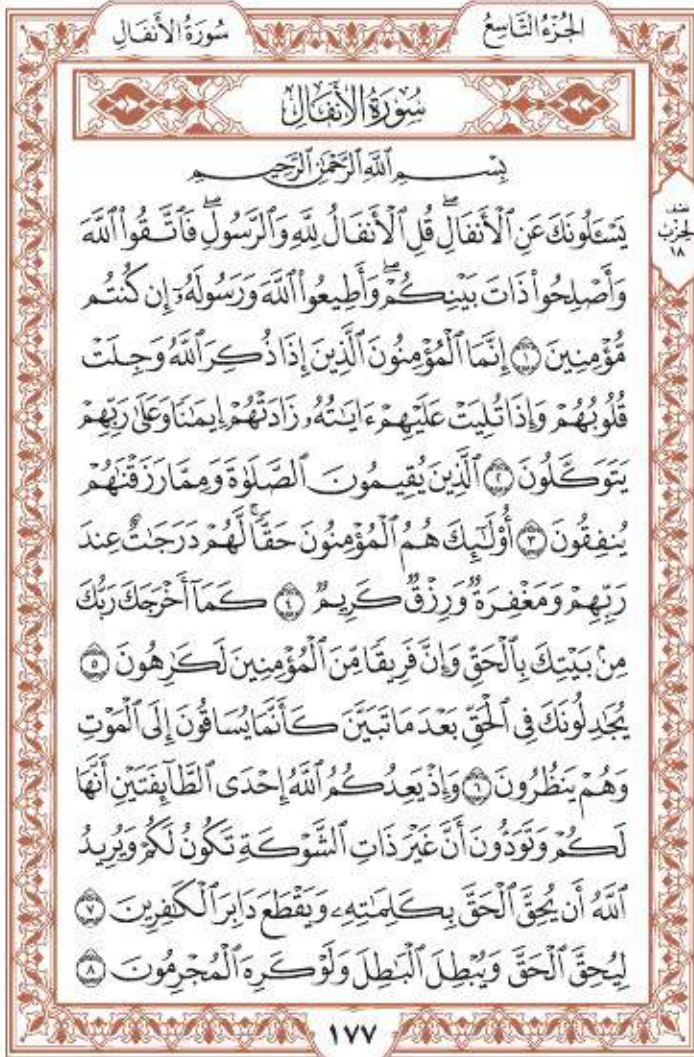 سُورَةُ الأَنفَالِ
الجُزْءُ التَّاسِعُ
سُورَةُ الأَنفَالِ
بِسْمِ ٱللَّهِ ٱلرَّحْمَٰنِ ٱلرَّحِيمِ
يَسْـَٔلُونَكَ عَنِ ٱلْأَنفَالِۖ قُلِ ٱلْأَنفَالُ لِلَّهِ وَٱلرَّسُولِۖ فَٱتَّقُوا۟ ٱللَّهَ
وَأَصْلِحُوا۟ ذَاتَ بَيْنِكُمْۖ وَأَطِيعُوا۟ ٱللَّهَ وَرَسُولَهُۥٓ إِن كُنتُم
مُّؤْمِنِينَ ١ إِنَّمَا ٱلْمُؤْمِنُونَ ٱلَّذِينَ إِذَا ذُكِرَ ٱللَّهُ وَجِلَتْ
قُلُوبُهُمْ وَإِذَا تُلِيَتْ عَلَيْهِمْ ءَايَٰتُهُۥ زَادَتْهُمْ إِيمَٰنًا وَعَلَىٰ رَبِّهِمْ
يَتَوَكَّلُونَ ٢ ٱلَّذِينَ يُقِيمُونَ ٱلصَّلَوٰةَ وَمِمَّا رَزَقْنَٰهُمْ
يُنفِقُونَ ٣ أُو۟لَٰٓئِكَ هُمُ ٱلْمُؤْمِنُونَ حَقًّاۚ لَّهُمْ دَرَجَٰتٌ عِندَ
رَبِّهِمْ وَمَغْفِرَةٌ وَرِزْقٌ كَرِيمٌ ٤ كَمَآ أَخْرَجَكَ رَبُّكَ
مِنۢ بَيْتِكَ بِٱلْحَقِّ وَإِنَّ فَرِيقًا مِّنَ ٱلْمُؤْمِنِينَ لَكَٰرِهُونَ ٥
يُجَٰدِلُونَكَ فِى ٱلْحَقِّ بَعْدَ مَا تَبَيَّنَ كَأَنَّمَا يُسَاقُونَ إِلَى ٱلْمَوْتِ
وَهُمْ يَنظُرُونَ ٦ وَإِذْ يَعِدُكُمُ ٱللَّهُ إِحْدَى ٱلطَّآئِفَتَيْنِ أَنَّهَا
لَكُمْ وَتَوَدُّونَ أَنَّ غَيْرَ ذَاتِ ٱلشَّوْكَةِ تَكُونُ لَكُمْ وَيُرِيدُ
ٱللَّهُ أَن يُحِقَّ ٱلْحَقَّ بِكَلِمَٰتِهِۦ وَيَقْطَعَ دَابِرَ ٱلْكَٰفِرِينَ ٧
لِيُحِقَّ ٱلْحَقَّ وَيُبْطِلَ ٱلْبَٰطِلَ وَلَوْ كَرِهَ ٱلْمُجْرِمُونَ ٨
الحِزْبُ
١٨
١٧٧